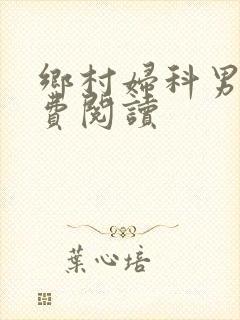 鄉村婦科男
費閱讀
葉心培